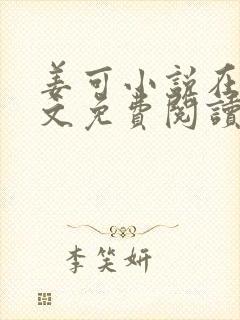 姜可小说在
文免費閱讀
李笑妍